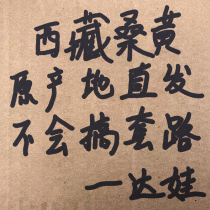 西藏桑黄
原产地直发
不会搞套路
一达娃